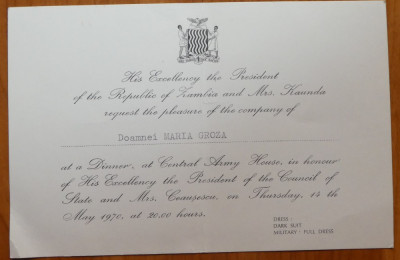 His Excellency the President
of the Republic of Zambia and Mrs. Kaunda
request the pleasure of the company of
Doamnei MARIA GROZA
at a Dinner, at Central Army House, in honour
of His Excellency the President of the Council of
State and Mrs. Ceauşescu, on Thursday, 14th
May 1970, at 20.00 hours.
DRESS -
DARK SUIT
MILITARY - FULL DRESS